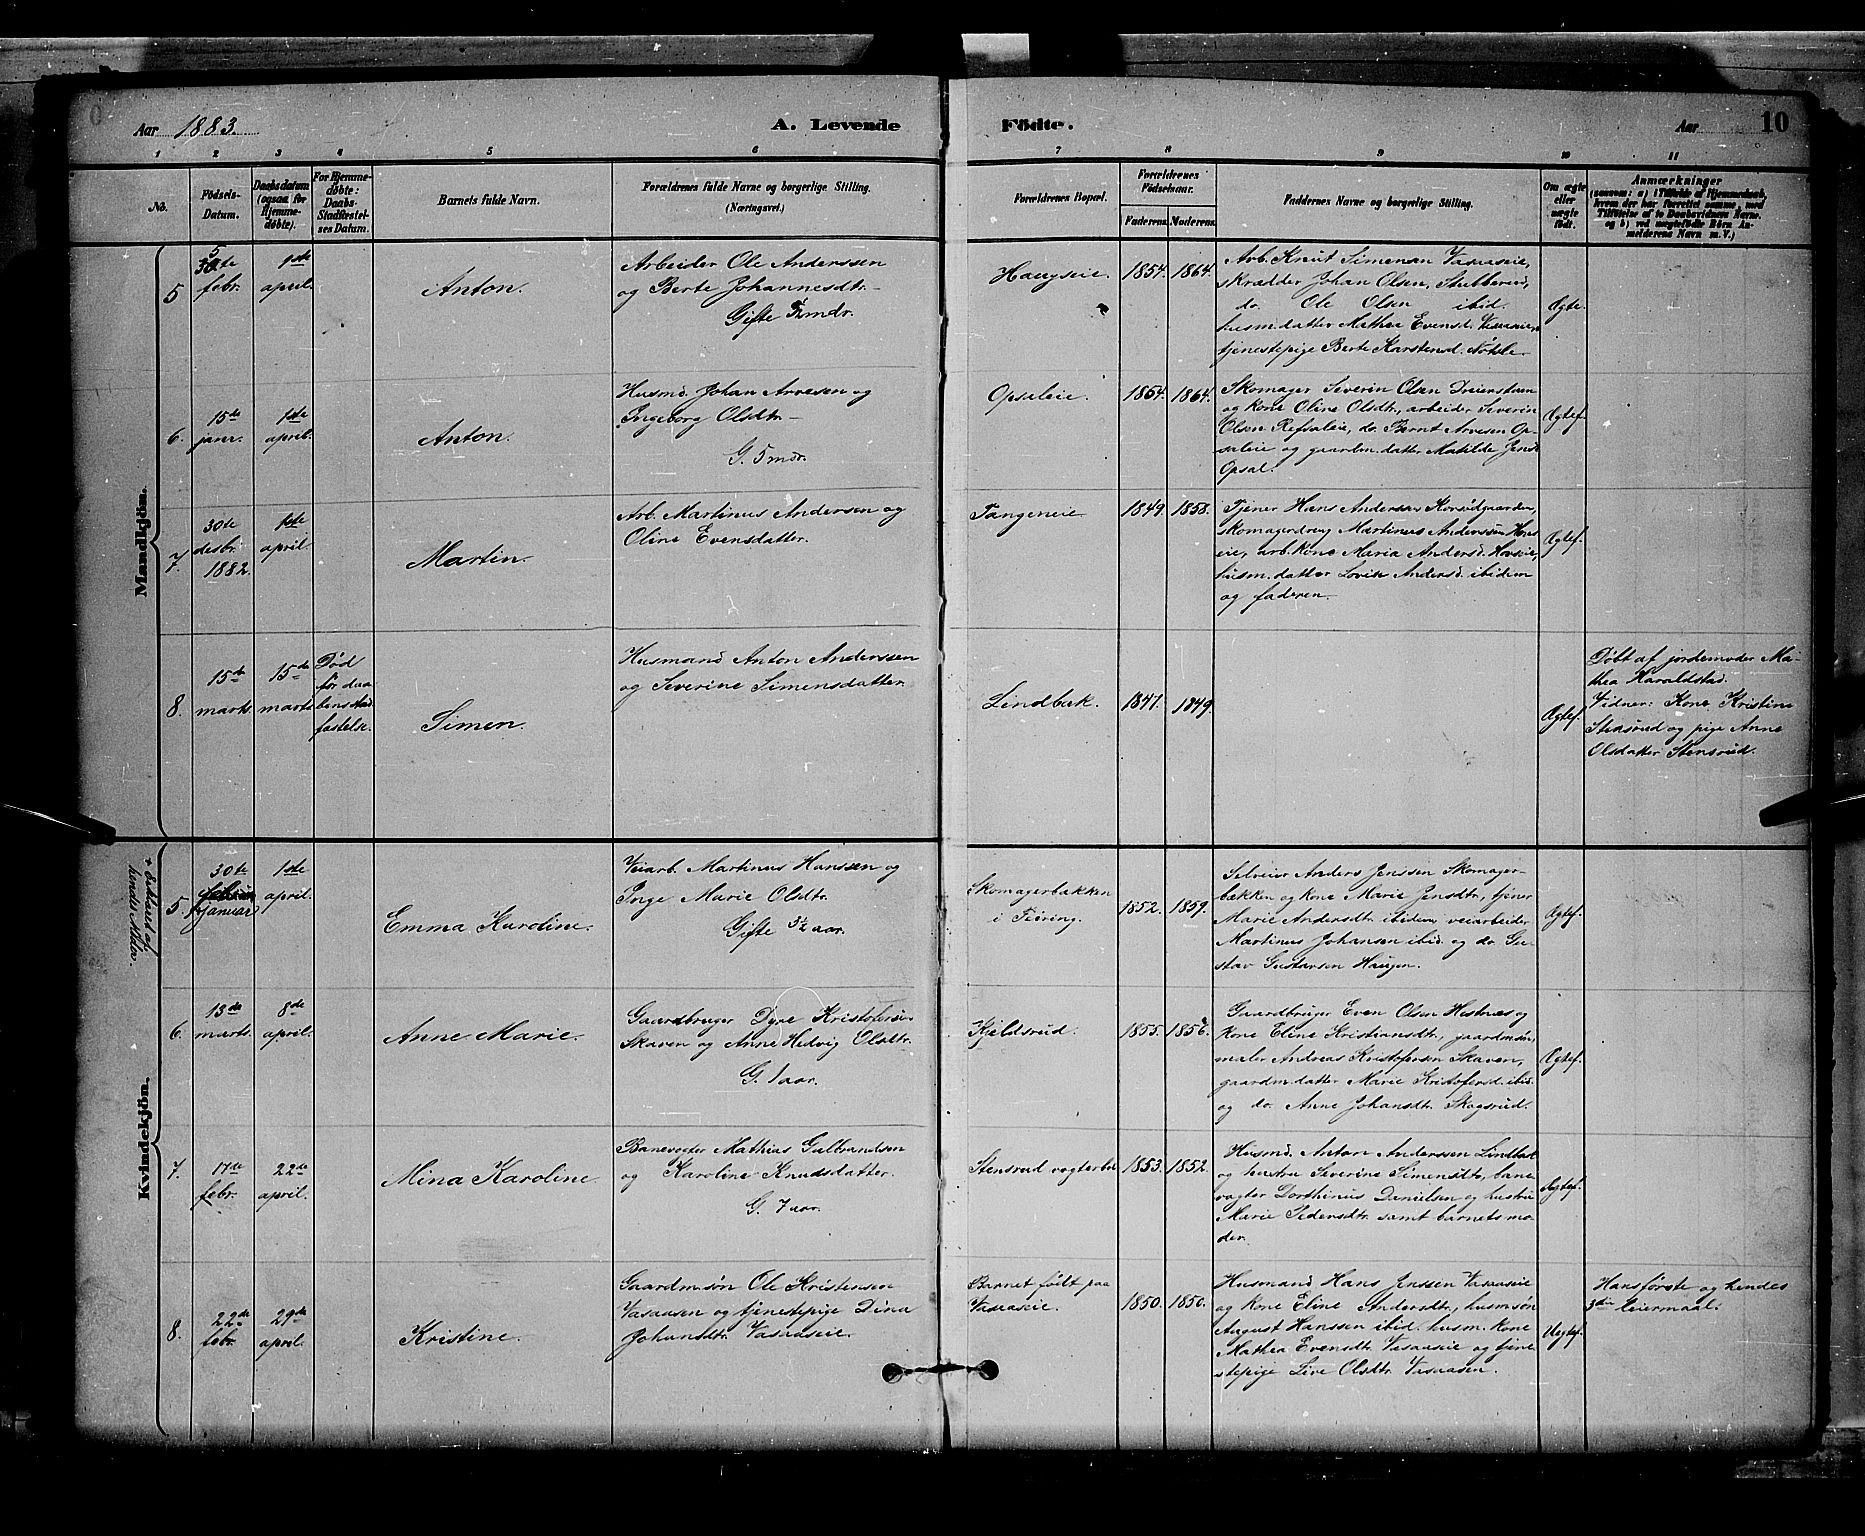 Aar 1883. A. Levende Födte. Aar 10
1 2 3 4 5 6 7 8 9 10 11
No.
Födsels-
Datum.
Daabsdatum
(ogsaa for
Hjemme-
døbte).
For Hjemme-
døbte:
Daabs-
Stadfæstel-
ses Datum.
Barnets fulde Navn.
Forældrenes fulde Navne og borgerlige Stilling.
(Næringsvei.)
Forældrenes Bopæl.
Forældrenes
Födselsaar.
Faderens. Moderens.
Faddernes Navne og borgerlige Stilling.
Om ægte
eller
uægte
født.
Anmærkninger
Mandkjön.
5
5
febr.
1ste
april.
Anton.
Arbeider Ole Anderssen
og Berte Johannesdtr.
Gifte mdr.
Haugseie.
1854. 1864.
Arb. Knut Simensen Vasaaseie,
skrædder Johan Olsen, Stubberud,
do. Ole Olsen ibid.
husm.datter Mathea Evensd. Vasaaseie,
tjenestepige Berte Karstensd. Nøkle
Ægte.
6.
15de
janr.
1ste
april.
Anton.
Husmd. Johan Arvesen og
Ingeborg Olsdtr.
G. 5 mdr.
Opsaleie.
1864. 1864.
Skomager Severin Olsen
og kone Oline Olsdtr., arbeider Severin
Olsen Refsaleie, do. Bernt Arvesen Op-
saleie og gaardm.datter Matilde Jensd.
Opsal.
Ægtef.
7.
30te
desbr.
1882.
1ste
april.
Martin.
Arb. Martinus Andersen og
Oline Evensdatter.
Tangeneie
1849. 1858.
Tjener Hans Andersen Korsødgaarden,
skomagerdreng Martinus Anderssen Hovs-
eie, arb.kone Maria Andersd. Hovseie,
husm.datter Lovise Andersd. ibidem
og faderen.
Ægtef.
8.
15de
marts.
15de
marts
Død
før daa-
bens stad-
festelse.
Simen.
Husmand Anton Anderssen
og Severine Simensdatter
Lindbæk.
1847. 1849.
Ægtef.
Døbt af jordemoder Ma-
thea Haraldstad.
Vidner: Kone Kristine
Stensrud og pige Anne
Olsdatter Stensrud.
Kvindekjön.
+ Erklæret af
hendes Moder.
5.
30te
januar
1ste
april.
Emma Karoline.
Veiarb. Martinus Hanssen og
Inge Marie Olsdtr.
Gifte 3½ aar.
Skomagerbakken
i Tioring.
1852. 1859.
Selveier Anders Jenssen Skomager-
bækken og kone Marie Jensdtr., tjener
Marie Andersdtr. ibidem, veiarbeider
Martinus Johansen ibid. og do. Gu-
stav Gustavsen Haugen.
Ægtef.
6.
13de
marts.
8de
april.
Anne Marie.
Gaardbruger Dyre Kristofersen
Skaven og Anne Hedvig Olsdtr.
G. 1 aar.
Kjeldsrud.
1855. 1856.
Gaardbruger Even Olsen Hestnes og
kone Eline Kristiansdtr., gaardmsøn,
maler Andreas Kristofersen Skaven,
gaardm.datter Marie Kristofersd. ibid.
og do. Anne Johansdtr. Skogsrud.
Ægtef.
7.
17de
febr.
22de
april.
Mina Karoline.
Banevogter Mathias Gulbrandsen
og Karoline Knudsdatter.
G. 7 aar.
Stensrud vogterbo.
1853. 1852.
Husmd. Anton Anderssen Lindbæk
og hustru Severine Simensdtr., bane-
vogter Dorthinus Danielsen og hustru
Marie Pedersdtr. samt barnets mo-
der.
Ægtef.
8.
22de
febr.
29de
april.
Kristine.
Gaardm.søn Ole Kristensen
Vasaasen og tjenestepige Dina
Johansdtr. Vasaaseie.
Barnet født paa
Vasaaseie.
1850. 1850.
Husmand Hans Jenssen Vasaaseie
og kone Eline Andersdtr., husm.søn
August Hanssen ibid., husm. kone
Mathea Evensdtr. Vasaaseie og tjene-
stepige Live Olsdtr. Vasaasen.
Uegtef.
Hans første og hendes
3die leiermaal.